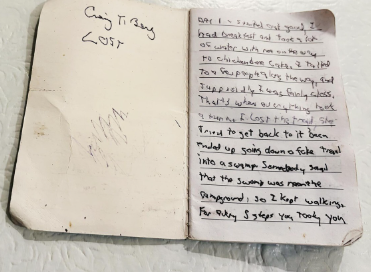 Craig T. Berg
LOST
DAY 1 - Started out good, I
had breakfast and took a lot
of water with me on the way
to
to a few people along the way, and
supposedly I was fairly close,
That's when everything took
a turn. I lost the trail. She
Tried to get back to it been
ended up going down a fake trail
into a swamp. Somebody said
that the swamp was near the
campground, so I kept walking.
For every 5 steps you